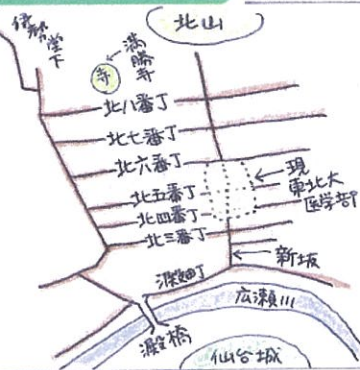 北山
満勝寺
寺
北八番丁
北七番丁
北六番丁
北五番丁
北四番丁
北三番丁
現
東北大
医学部
新坂
広瀬川
澱橋
仙台城